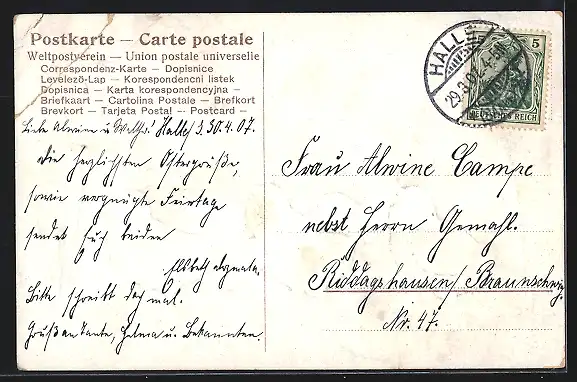 Postkarte — Carte postale
Weltpostverein — Union postale universelle
Correspondenz-Karte — Dopisnice
Levelező-Lap — Korespondencni listek
Dopisnica — Karta korespondencyjna —
Briefkaart — Cartolina Postale — Brefkort
Brevkort — Tarjeta Postal — Postcard —
HALLE
5
DEUTSCHES REICH
Liebe Alwine u. Halle 30.4.07.
Die herzlichsten Ostergrüße,
sowie vergnügte Feiertage
sendet Euch beiden
Elsbeth
Bitte schreibt doch mal.
Gruß an Tante, Helma u. Bekannten.
Frau Alwine Campe
nebst Herrn Gemahl.
Riddagshausen/Braunschweig.
Nr. 47.